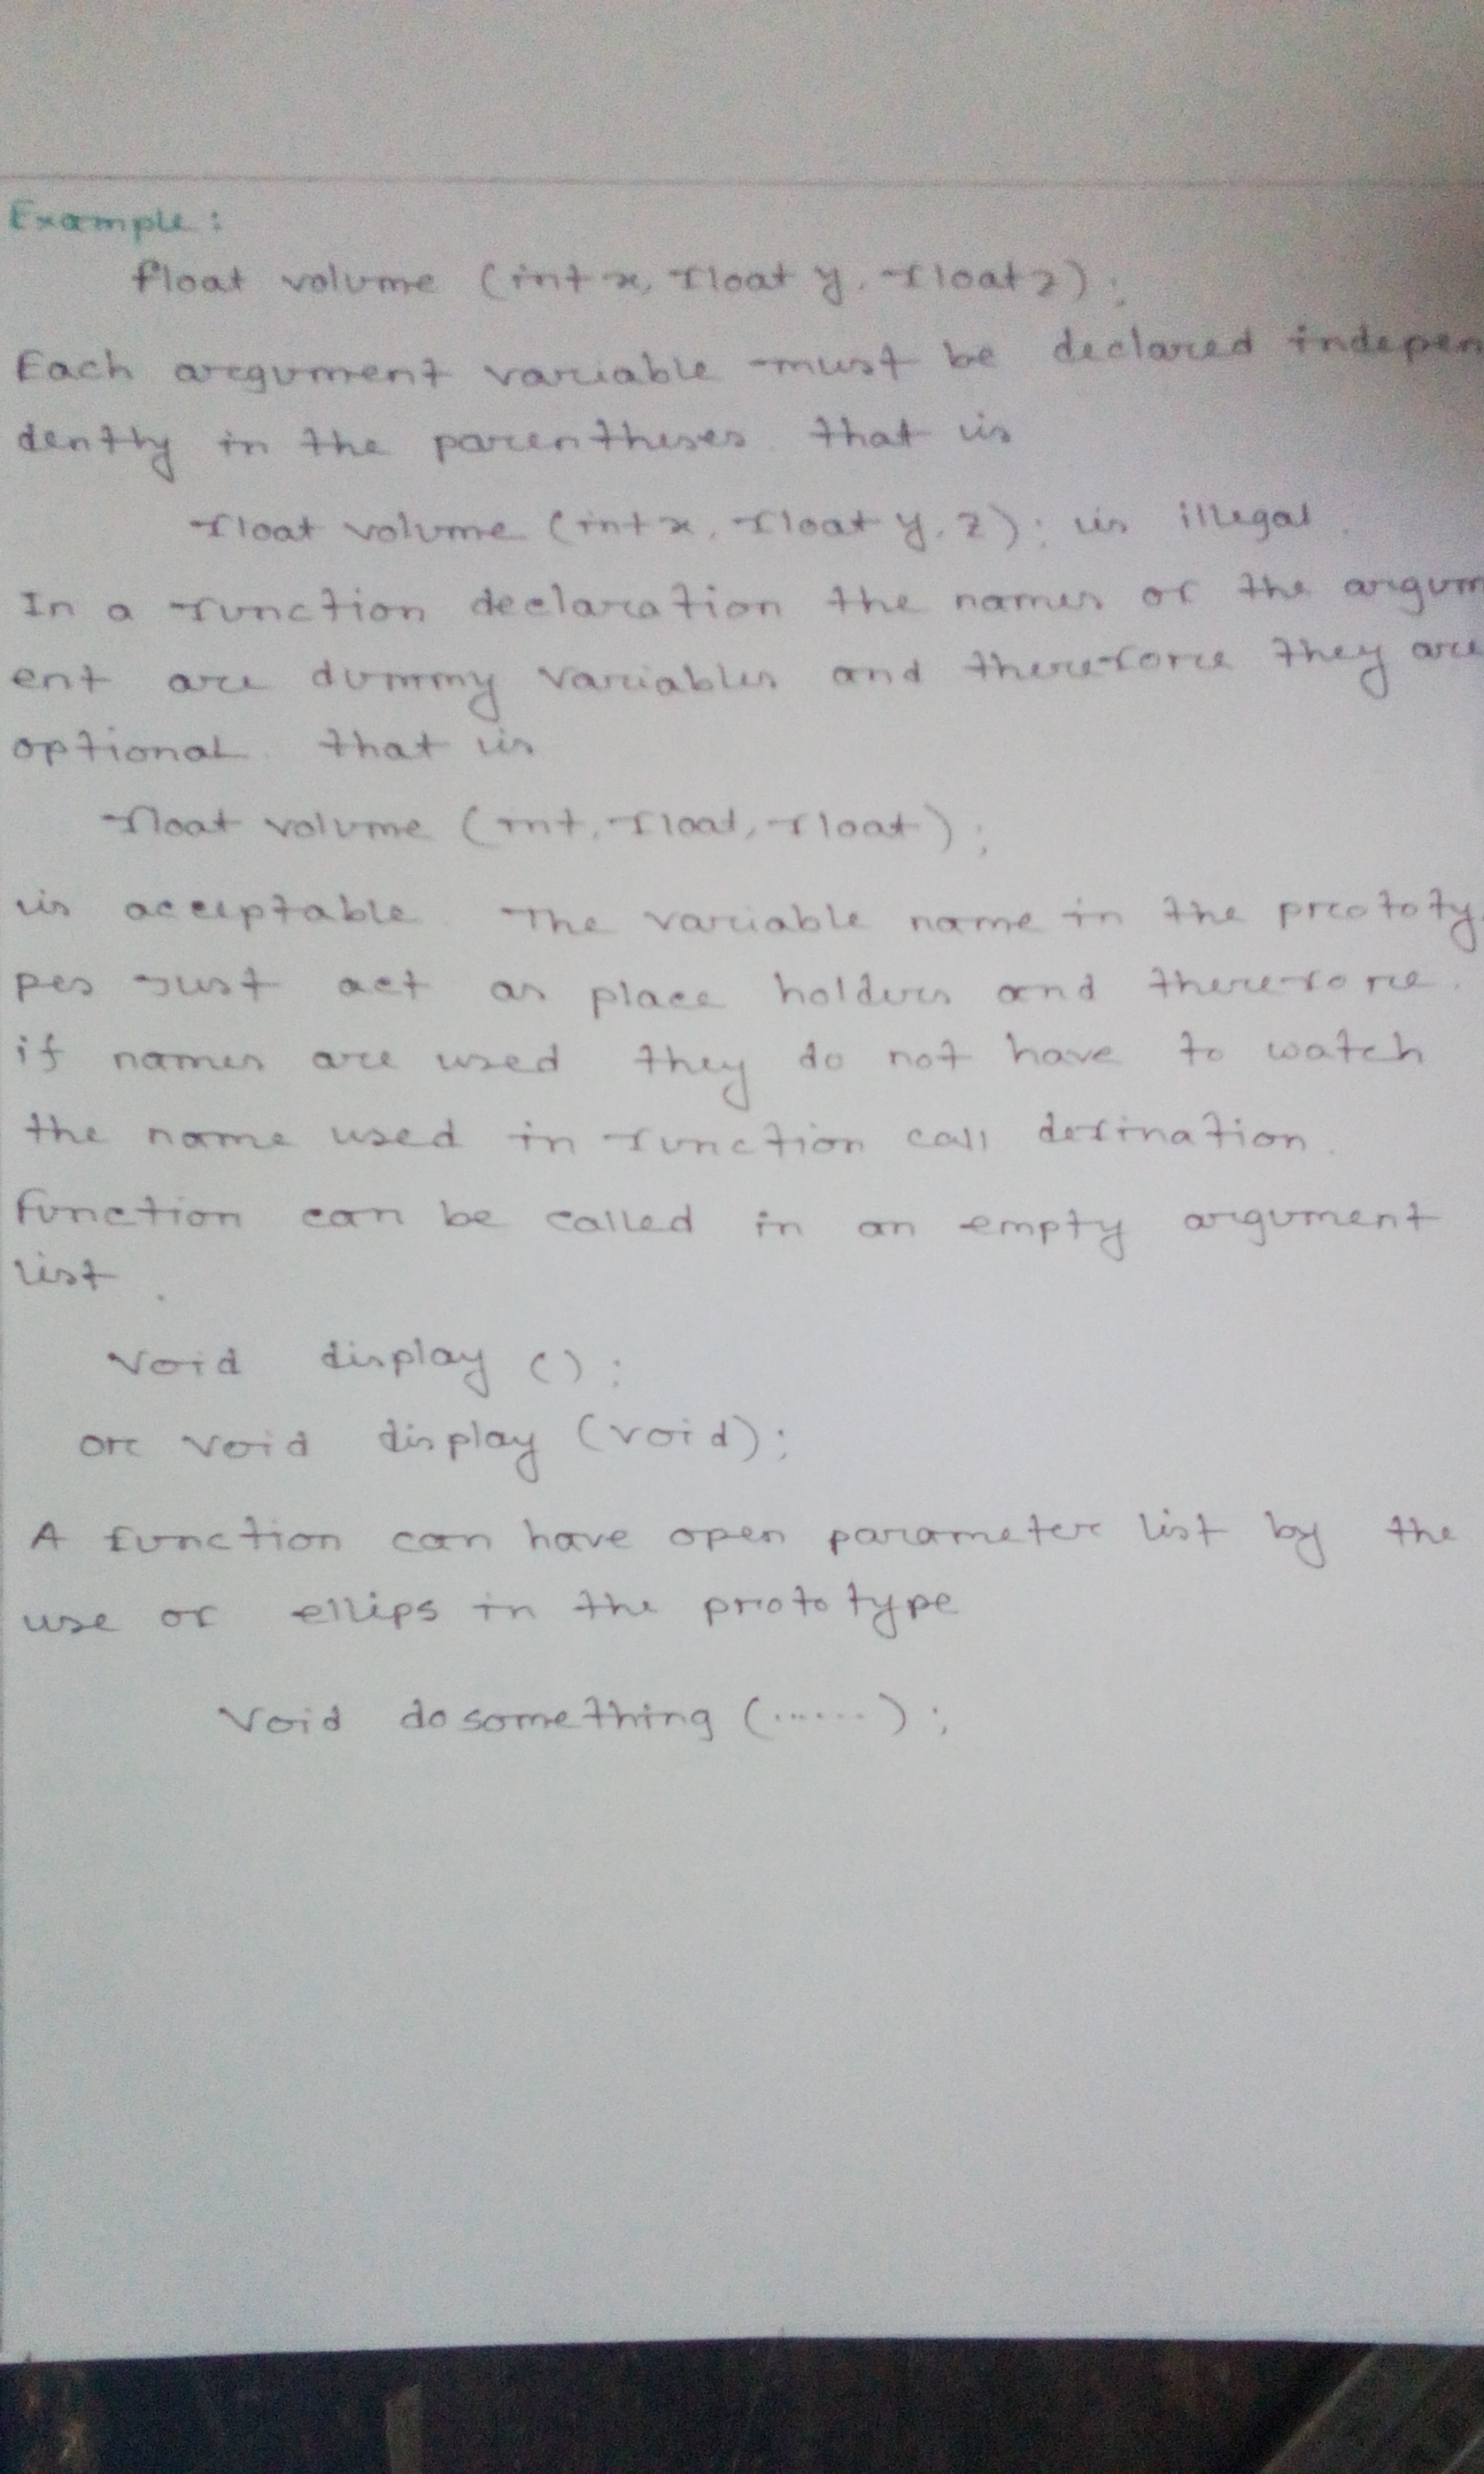 Example:
float volume (int x, float y, float z);
Each argument variable must be declared indepen
dently in the parentheses. that is
float volume (int x, float y, z); is illegal.
In a function declaration the names of the argum
ent are dummy variables and therefore they are
optional. that is
float volume (int, float, float);
is acceptable. The variable name in the prototy
pes just act as place holders and therefore.
if names are used they do not have to watch
the name used in function call defination.
function can be called in an empty argument
list.
Void display ();
or void display (void);
A function can have open parameter list by the
use of ellips in the prototype
Void dosomething (......);